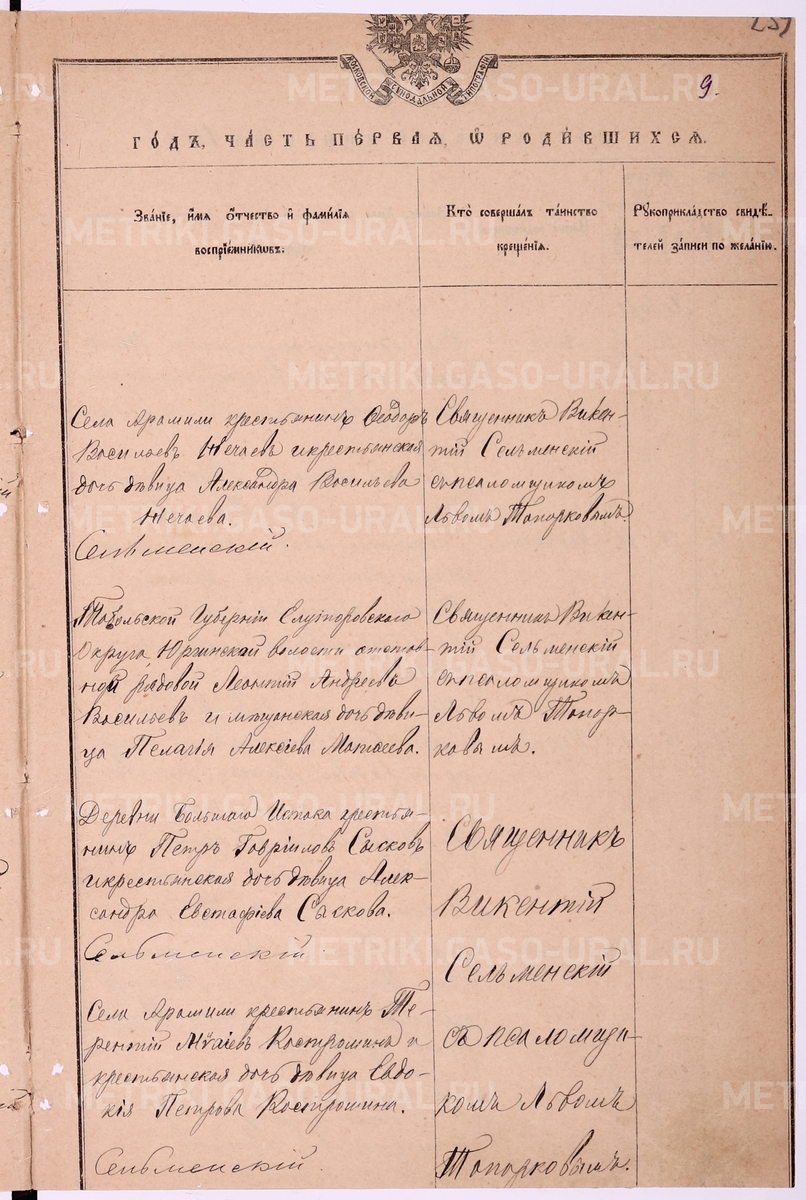 МОСКОВСКОЙ СѴНОДАЛЬНОЙ ТИПОГРАФІИ
9.
ГО́ДЪ, ЧА́СТЬ ПЕ́РВАЯ, Ѡ҆ РОДИ́ВШИХСЯ.
Зва́нїе, и҆́мѧ ѻ҆́тчество и҆ фами́лїѧ
воспрїе́мникѡвъ.
Кто̀ соверша́лъ та́инство
креще́нїѧ.
Рꙋкоприкла́дство свидѣ́-
телей за́писи по жела́нїю.
Села Арамили крестьянинъ Ѳеодоръ
Васильевъ Нечаевъ и крестьянская
дочь дѣвица Александра Васильева
Нечаева.
Сельменскій.
Священникъ Викен-
тій Сельменскій
съ псаломщикомъ
Львомъ Топорковымъ.
Тобольской Губерніи
Округа, Юргинской волости
рядовой Леонтій Андреевъ
Васильевъ и мѣщанская дочь дѣви-
ца Пелагія Алексіева Матѳеева.
Священникъ Викен-
тій Сельменскій
съ псаломщикомъ
Львомъ Топор-
ковымъ.
Деревни Большаго Истока крестья-
нинъ Петръ Гавріиловъ Сысковъ
и крестьянская дочь дѣвица Алек-
сандра Евстафіева Сыскова.
Сельменскій
Села Арамили крестьянинъ Те-
рентій Костромина и
крестьянская дочь дѣвица Евдо-
кія Петрова Костромина.
Сельменскій.
Священникъ
Викентій
Сельменскій
съ псаломщи-
комъ Львомъ
Топорковымъ.
METRIKI.GASO-URAL.RU